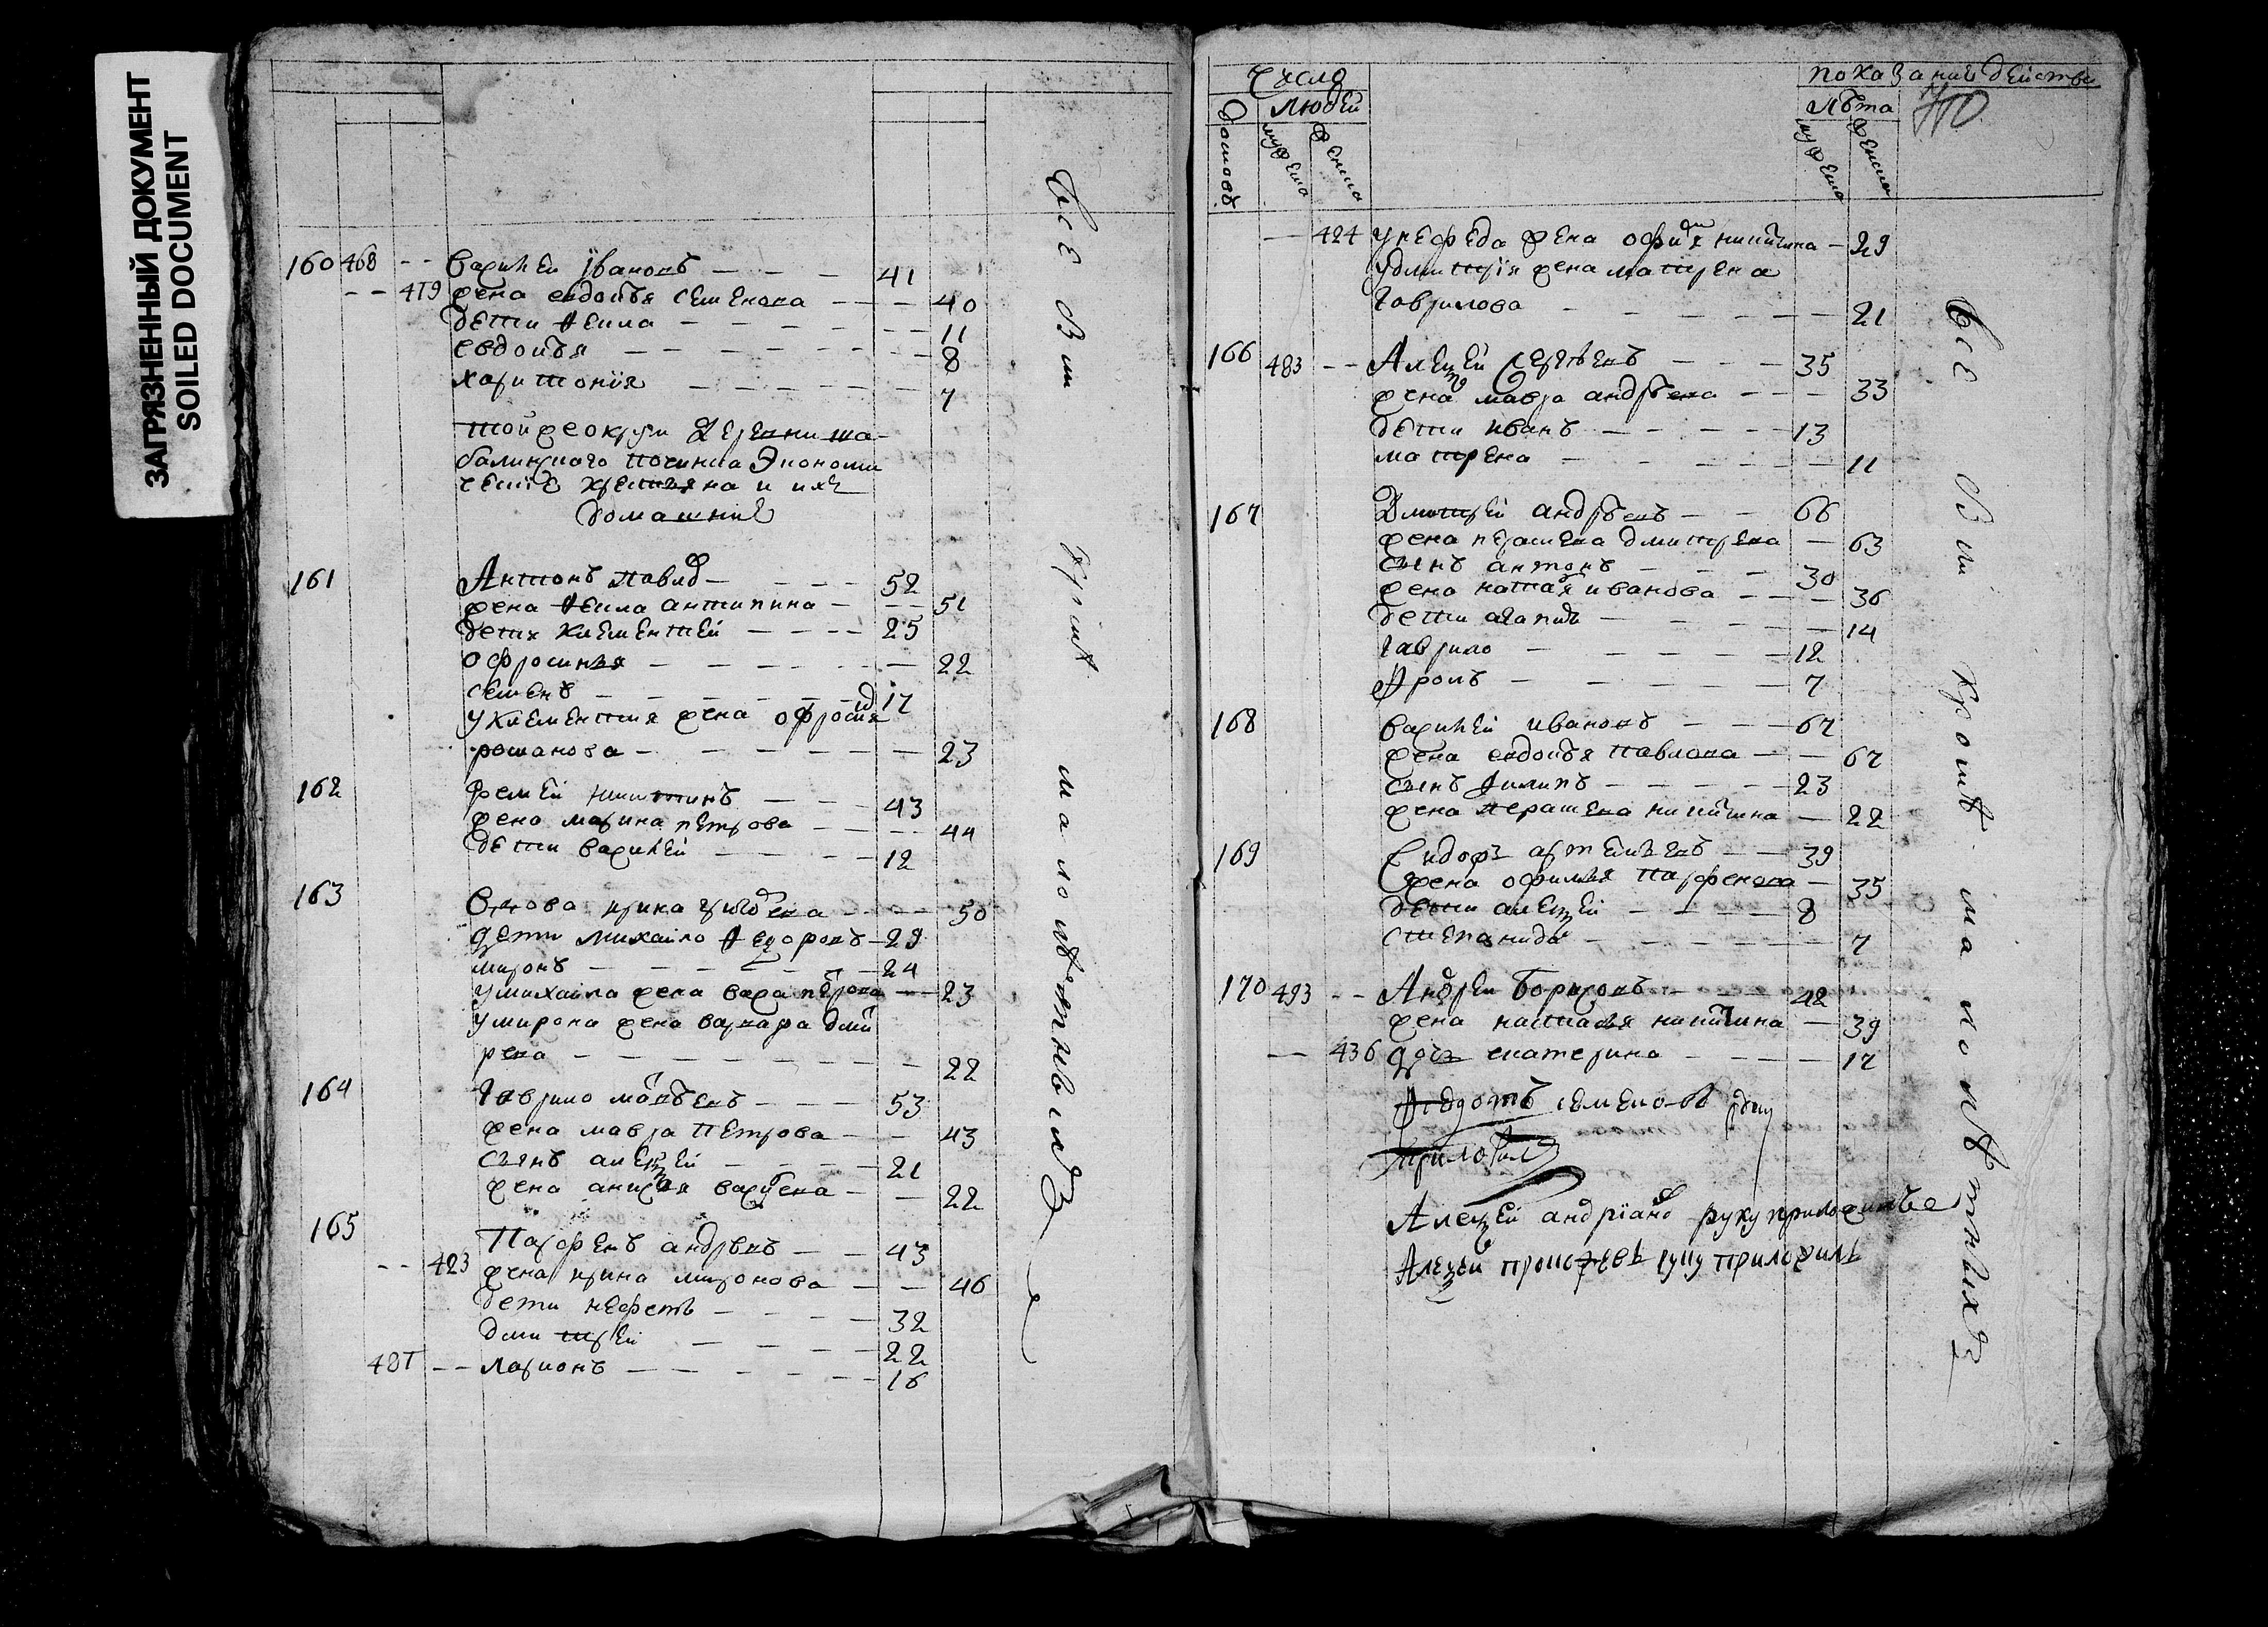 ЗАГРЯЗНЕННЫЙ ДОКУМЕНТ
SOILED DOCUMENT
160 468 -- Василей ївановъ --- 41
-- 419 жена евдокѣя семенова --- 40
дети Фекла --- 11
евдокѣя --- 8
харитонїя --- 7
той же округи деревни
починка Экономи
ческїе крестьяна и ихъ
домашние
161 Антонъ 52
жена Фекла антипина -- 51
дети клементей ---- 25
офросинья --- 22
семенъ --- 17
у клементия жена офросиа
романова --- 23
162 никитинъ --- 43
жена марина петрова --- 44
дети василей --- 12
163 Вдова ирина --- 50
дети михайло Федоровъ - 29
миронъ --- 24
у михаила жена васа петрова -- 23
у мирона жена варвара дми
рева --- 22
164 Гаврило матвѣевъ --- 53
жена мавра петрова -- 43
сынъ алексей --- 21
жена анисья васильева -- 22
165 Парфенъ андрѣевъ -- 43
-- 423 жена ирина миронова -- 46
дети нефетъ --- 32
дмитрей --- 22
481 -- ларионъ --- 16
всѣ в ни кромѣ малолѣтныхъ
число
показание действи
домовъ
людей
мужеска
женска
лѣта
мужеска
женска
-- 424 у нефеда жена офимия никитина - 29
у дмитрїя жена матрена
гаврилова --- 21
166 483 -- Алексей Сергѣевъ --- 35
жена мавра андрѣева --- 33
дети иванъ --- 13
матрена --- 11
167 Дмитрей андрѣевъ -- 66
жена парасковя дмитрева - 63
сынъ антонъ --- 30
жена наталя иванова --- 36
дети агапия --- 14
гаврило --- 12
Фролъ --- 7
168 Василей ивановъ --- 67
жена евдокѣя павлова -- 67
сынъ Филипъ --- 23
жена парасковя никитина - 22
169 Сидоръ артемьевъ -- 39
жена офимья парфенова - 35
дети алексей --- 8
степанида --- 7
170 493 -- Андрей Борисовъ --- 42
жена наталья никитина - 39
-- 436 дочь екатерина --- 17
Федотъ семеновъ руку
приложил
Алексей андрїановъ руку приложилъ
Алексей руку приложилъ
всѣ в ни кромѣ малолѣтныхъ